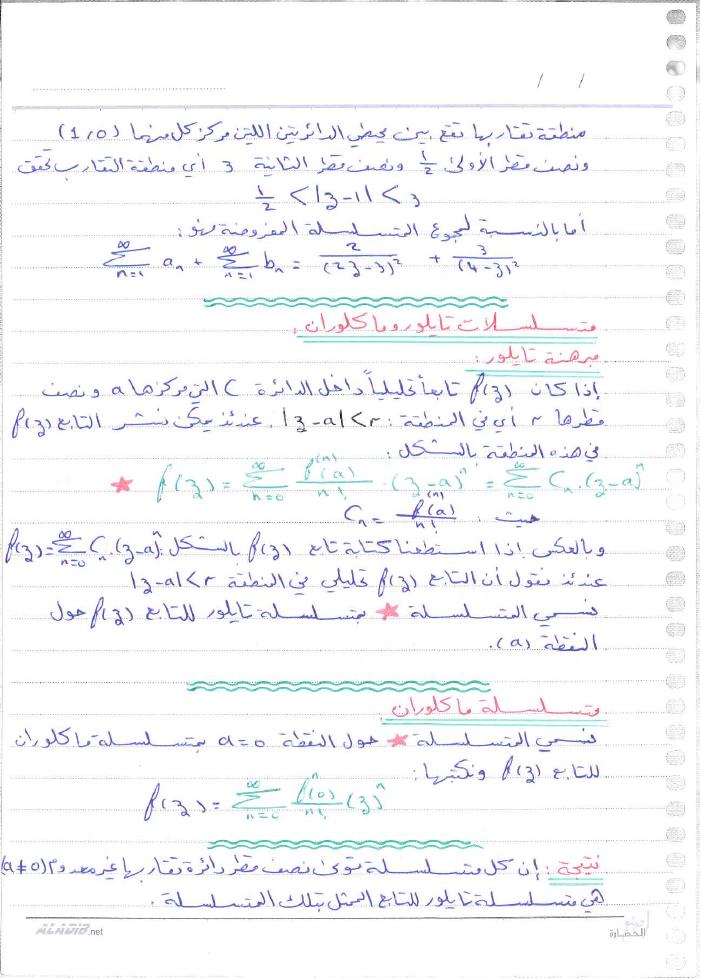 / /
منطقة تقاربها تقع بين محيطي الدائرتين اللتين مركز كل منهما (1,0)
ونصف قطر الأولى 1/2 ونصف قطر الثانية 3 أي منطقة التقارب تحقق
1/2 < |z-1| < 3
أما بالنسبة لمجموع المتسلسلة المفروضة فهو:
∑_{n=1}^{∞} a_n + ∑_{n=1}^{∞} b_n = 2/(2z-3)² + 3/(4-z)²
متسلسلات تايلور وماكلوران:
مبرهنة تايلور:
إذا كان f(z) تابعاً تحليلياً داخل الدائرة C التي مركزها a ونصف
قطرها r أي في المنطقة: |z-a|<r، عندئذ يمكن نشر التابع f(z)
في هذه المنطقة بالشكل:
★ f(z) = ∑_{n=0}^{∞} f^{(n)}(a)/n! · (z-a)^n = ∑_{n=0}^{∞} C_n·(z-a)^n
حيث: C_n = f^{(n)}(a)/n!
وبالعكس إذا استطعنا كتابة تابع f(z) بالشكل: f(z)=∑_{n=0}^{∞} C_n·(z-a)^n
عندئذ نقول أن التابع f(z) تحليلي في المنطقة |z-a|<r
نسمي المتسلسلة ★ بمتسلسلة تايلور للتابع f(z) حول
النقطة (a).
متسلسلة ماكلوران:
نسمي المتسلسلة ★ حول النقطة a=0 بمتسلسلة ماكلوران
للتابع f(z) ونكتبها:
f(z) = ∑_{n=0}^{∞} f^n(0)/n! (z)^n
نتيجة: إن كل متسلسلة قوى نصف قطر دائرة تقاربها غير معدوم (a≠0)
هي متسلسلة تايلور للتابع الممثل بتلك المتسلسلة.
ALADIB.net
الحضارة